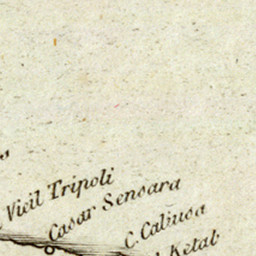 Vieil Tripoli
Casar Sensara
C. Cabusa
Ketab